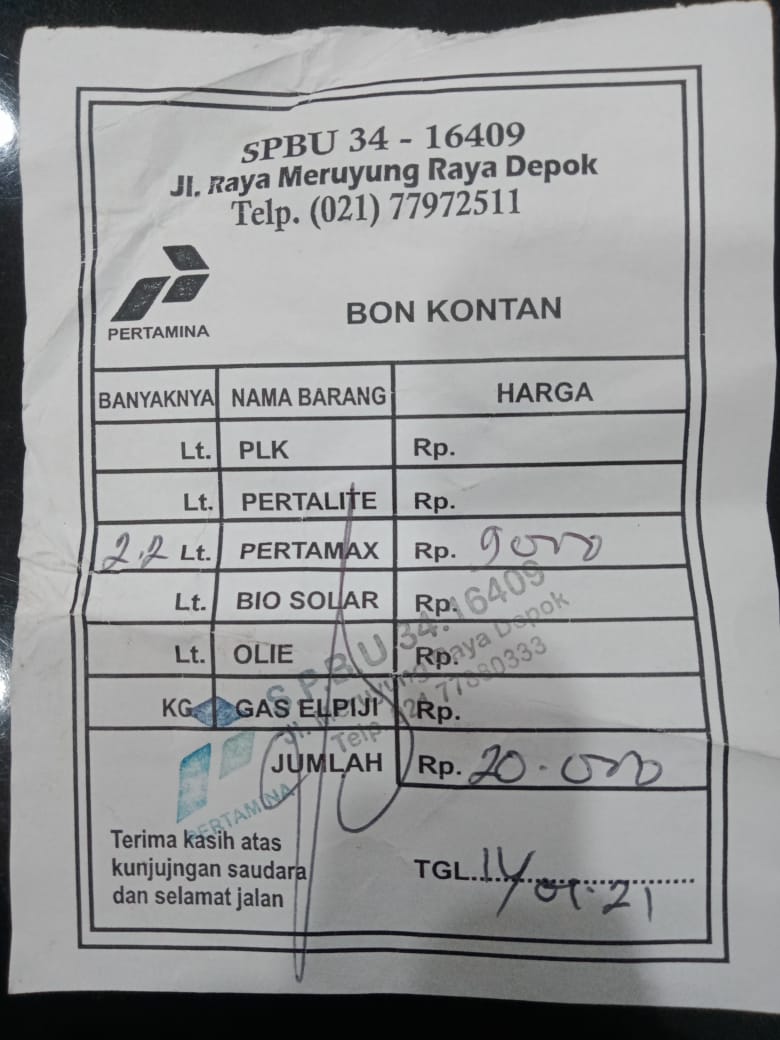 SPBU 34 - 16409
Jl. Raya Meruyung Raya Depok
Telp. (021) 77972511
PERTAMINA
BON KONTAN
BANYAKNYA NAMA BARANG HARGA
Lt. PLK Rp.
Lt. PERTALITE Rp.
2.2 Lt. PERTAMAX Rp. 9000
Lt. BIO SOLAR Rp.
Lt. OLIE Rp.
KG GAS ELPIJI Rp.
JUMLAH Rp. 20.000
S.P.B.U 34.16409
Jl. Meruyung Raya Depok
Telp.
PERTAMINA
Terima kasih atas
kunjujngan saudara
dan selamat jalan
TGL.